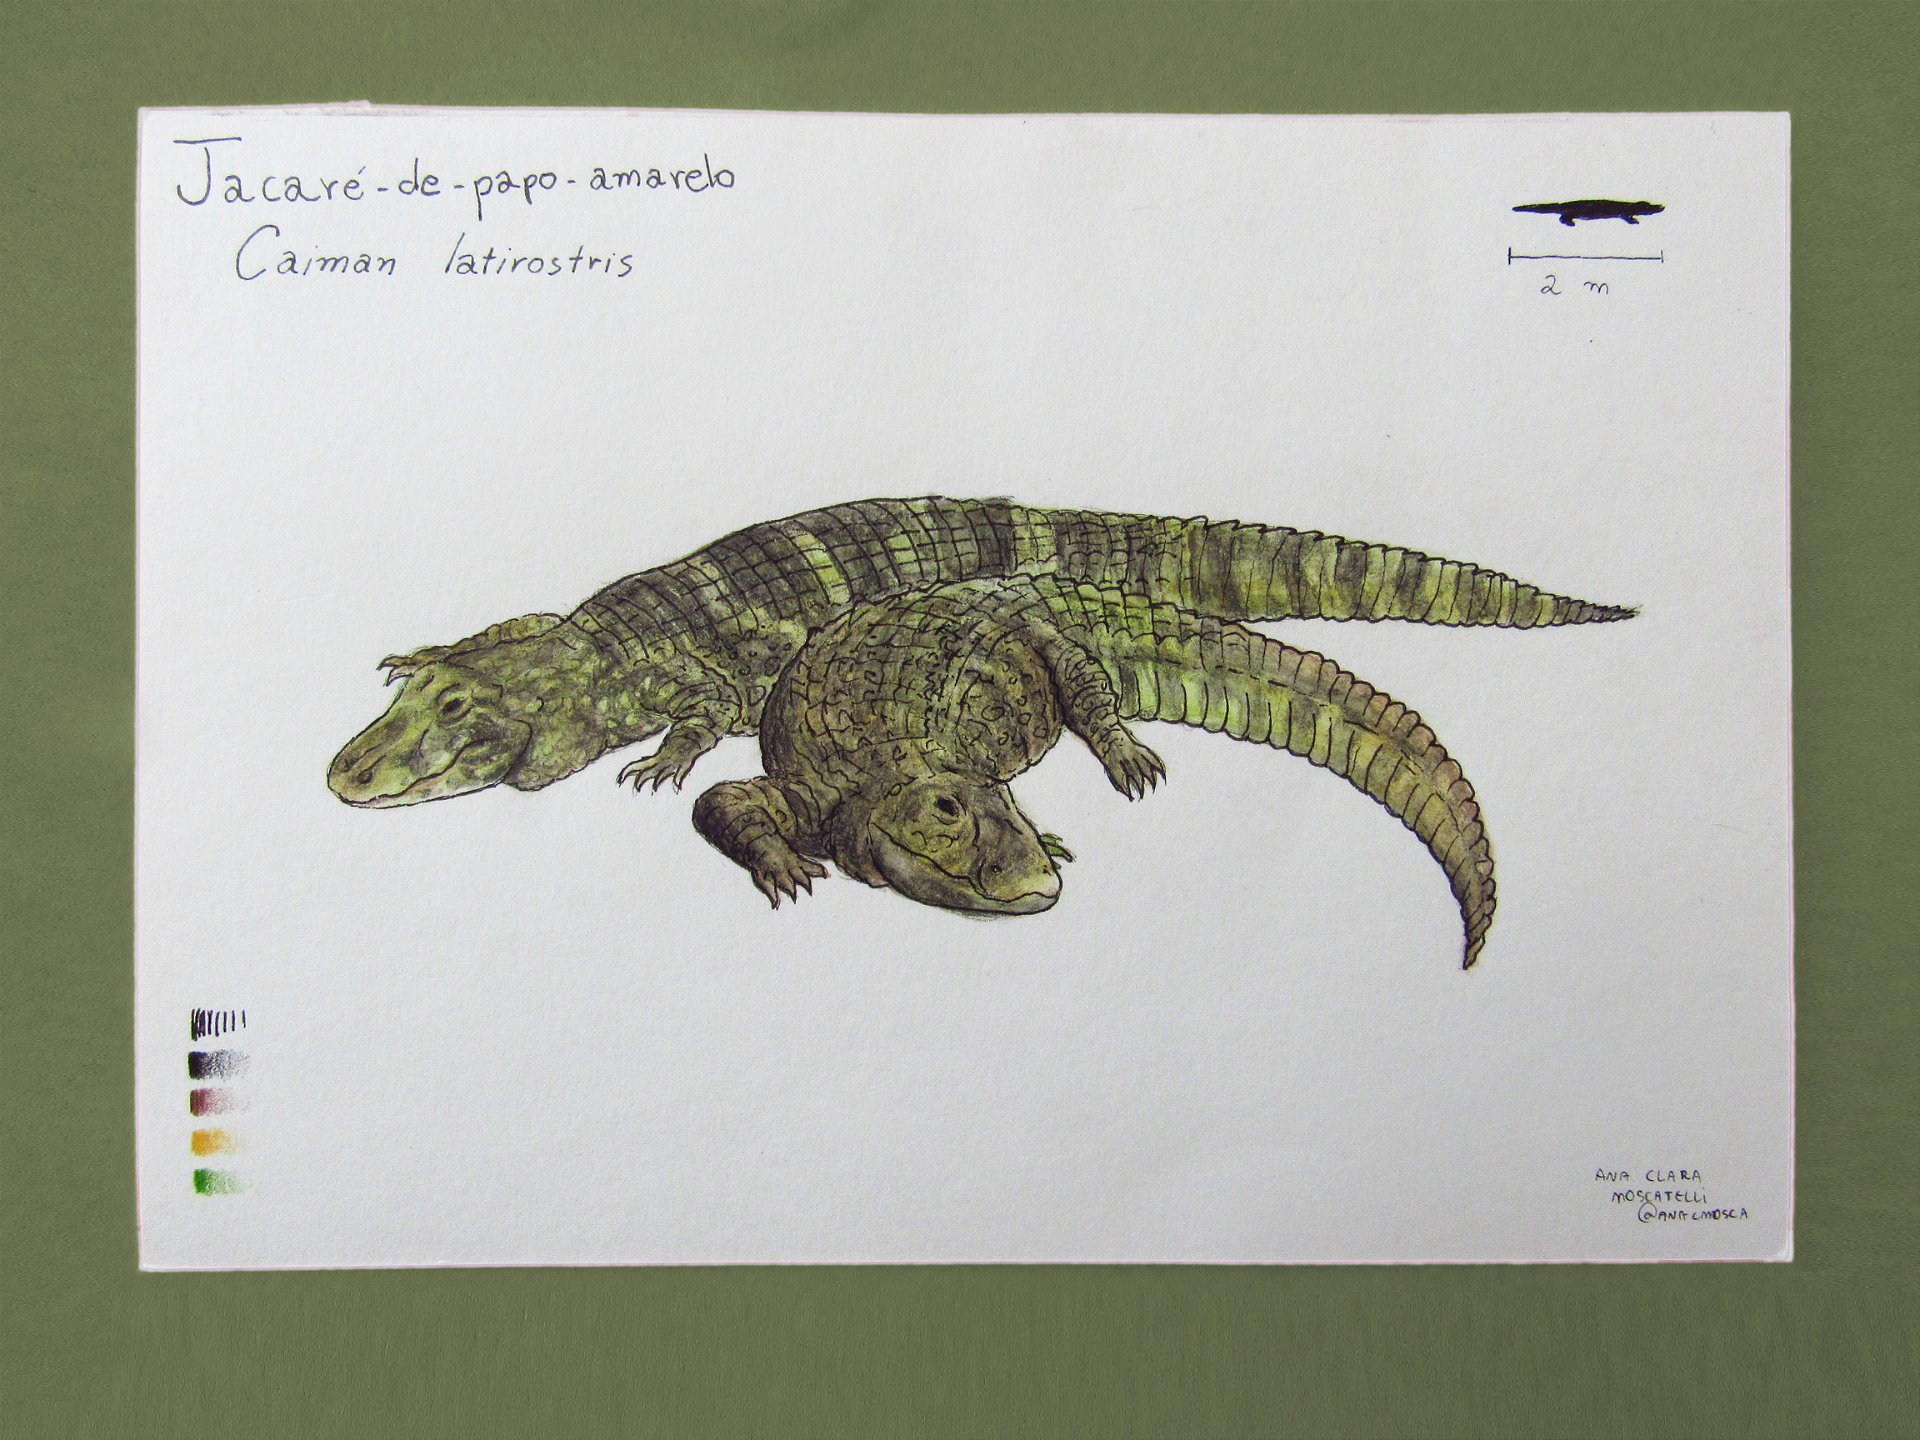 Jacaré-de-papo-amarelo
Caiman latirostris
2 m
ANA CLARA
MOSCATELLI
@ANACMOSCA